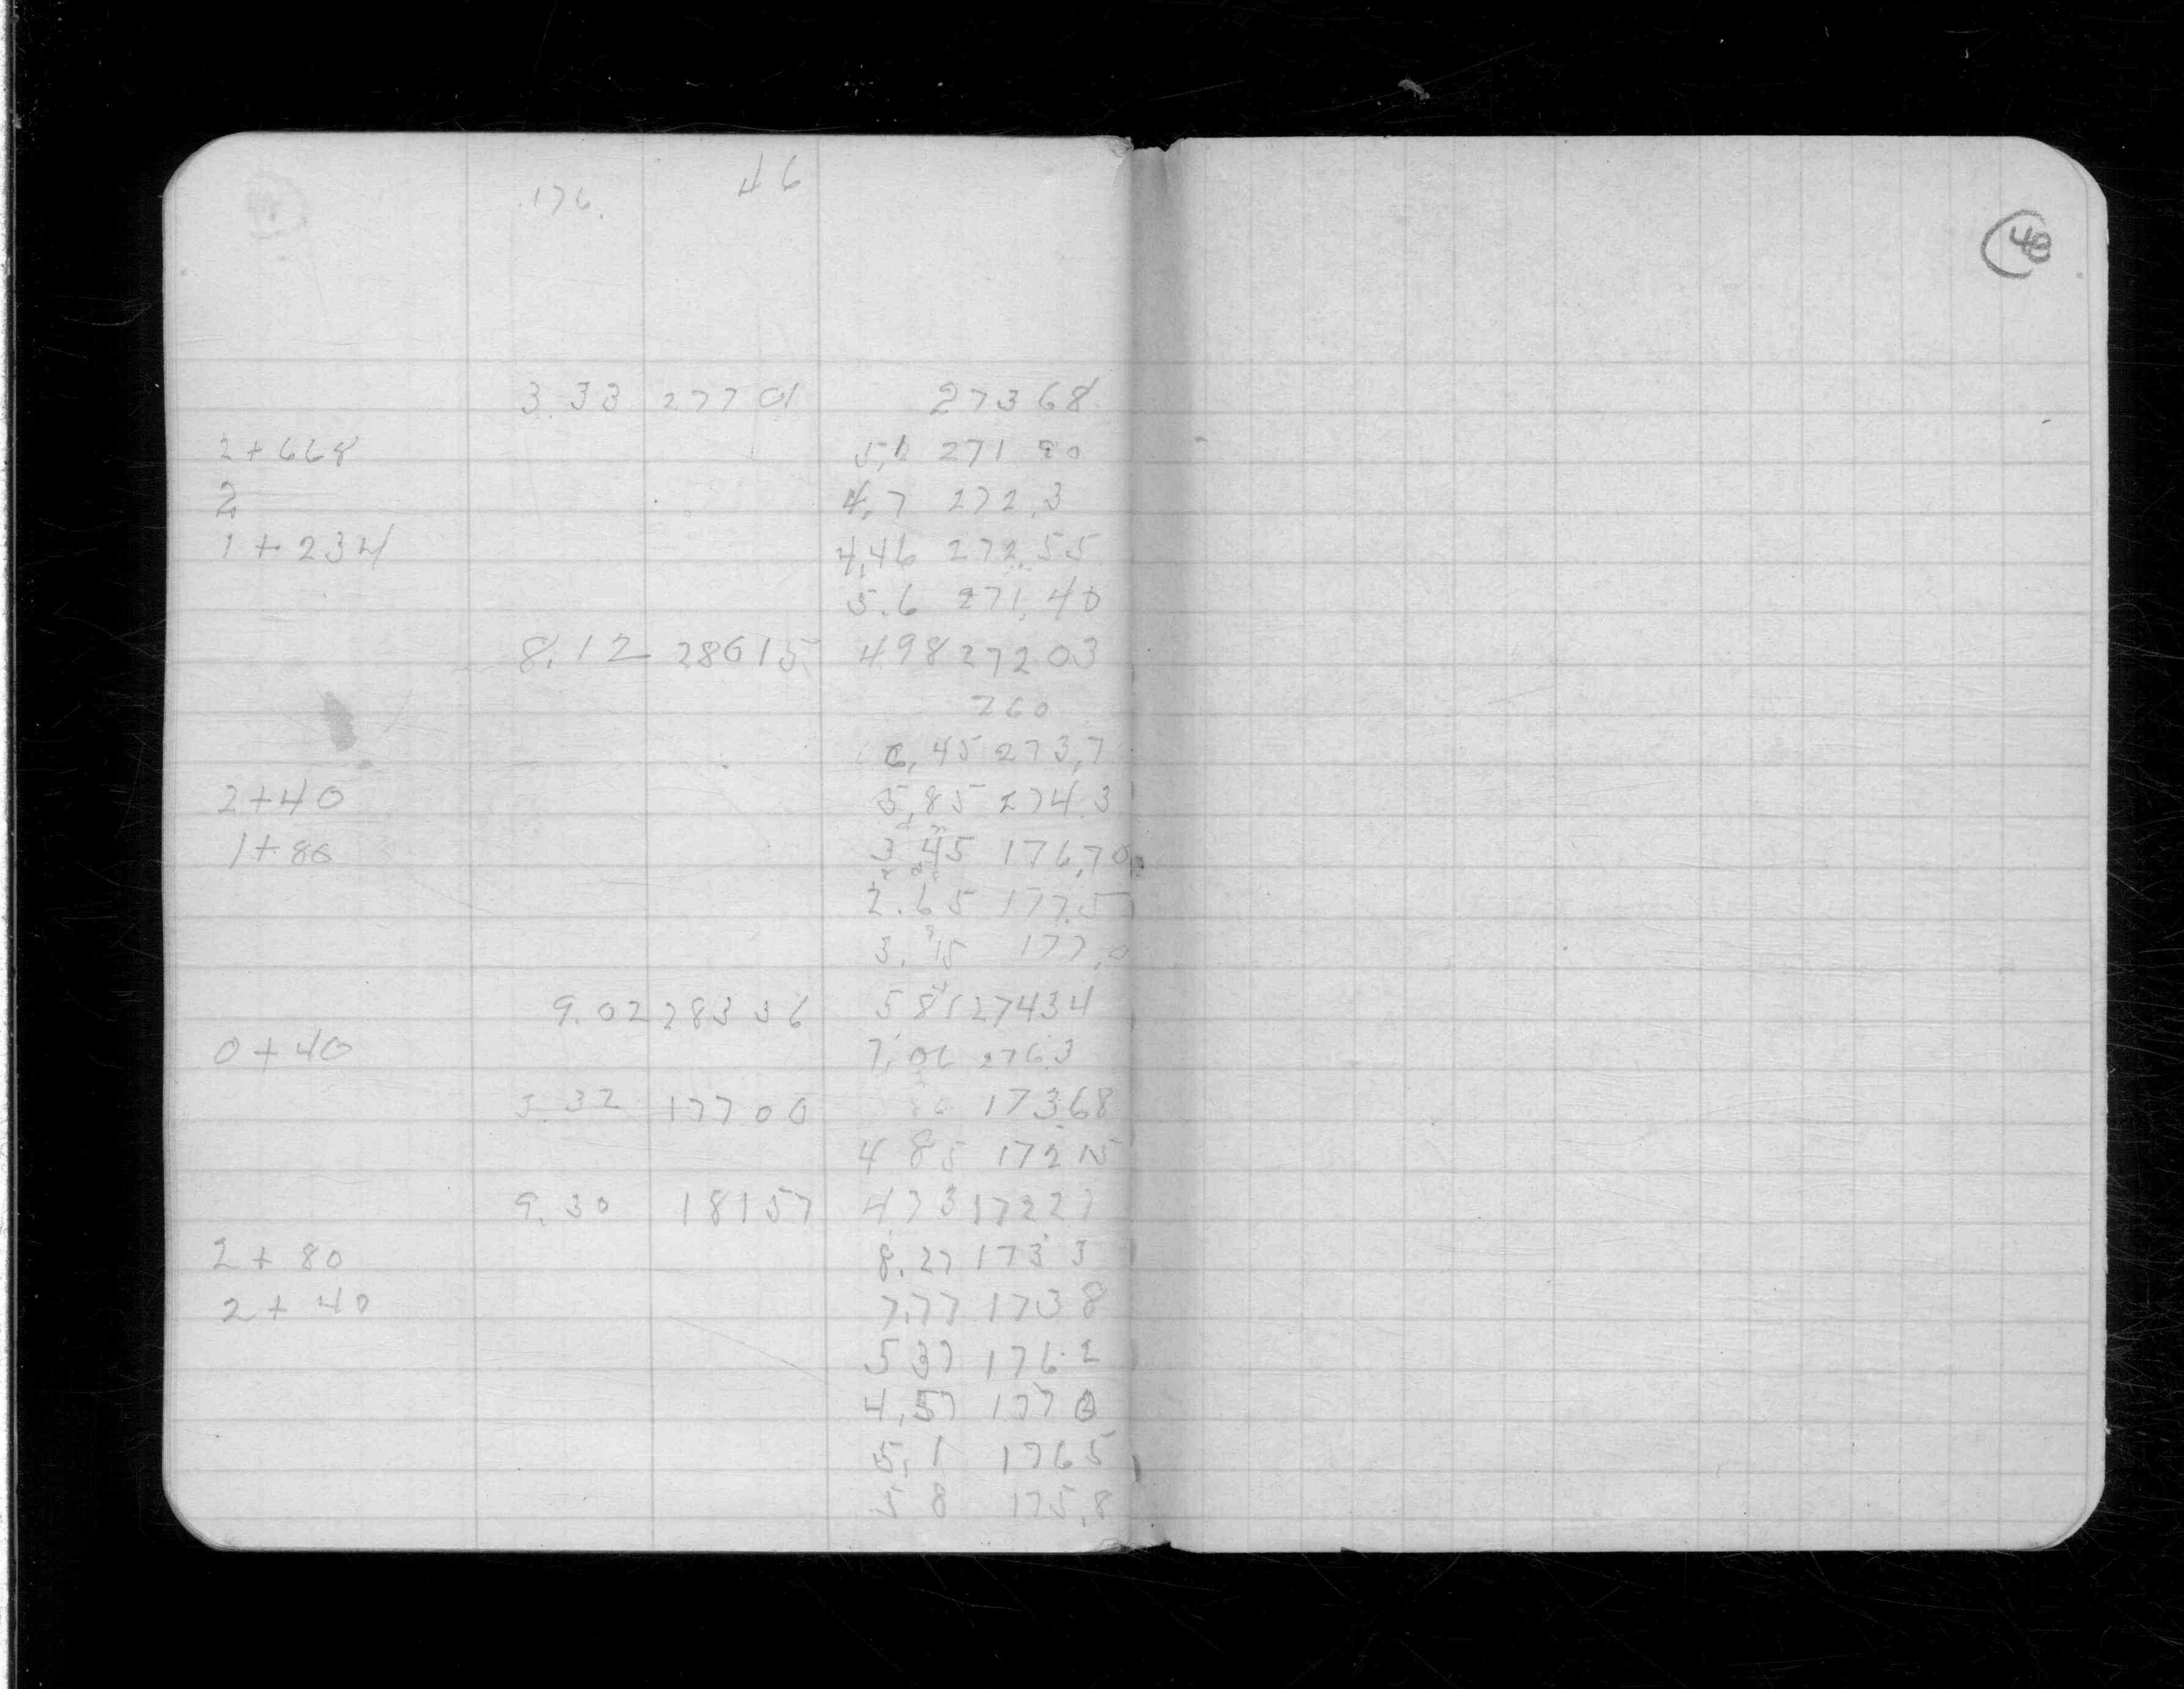 176. 46
48
3.33 27701 27368
2+668 5,1 271 90
2 4,7 272,3
1+234 4,46 272,55
5.6 271,40
8.12 28015 498 27203
260
6,45 273,7
2+40 5,85 274.3
1+80 3 45 176,70
2.65 177.5
3. 15 177,0
9.02 28336 581 27434
0+40 7,06 2763
3.32 17700 17368
4 85 172 15
9.30 18157 473 17227
2+80 8.27 173 3
2+40 7.77 173 8
5 37 176.2
4,57 177 0
5,1 176 5
5 8 175,8